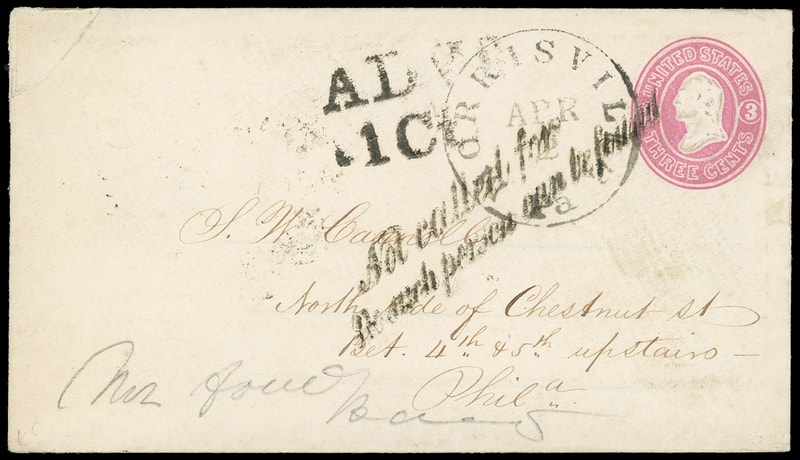 ADV
1C
ORRISVIL
APR
2
Pa
UNITED STATES
3
THREE CENTS
Not called for
No such person can be found
S. W. Carroll
North side of Chestnut st
Bet. 4th & 5th upstairs —
Phila.
Not found